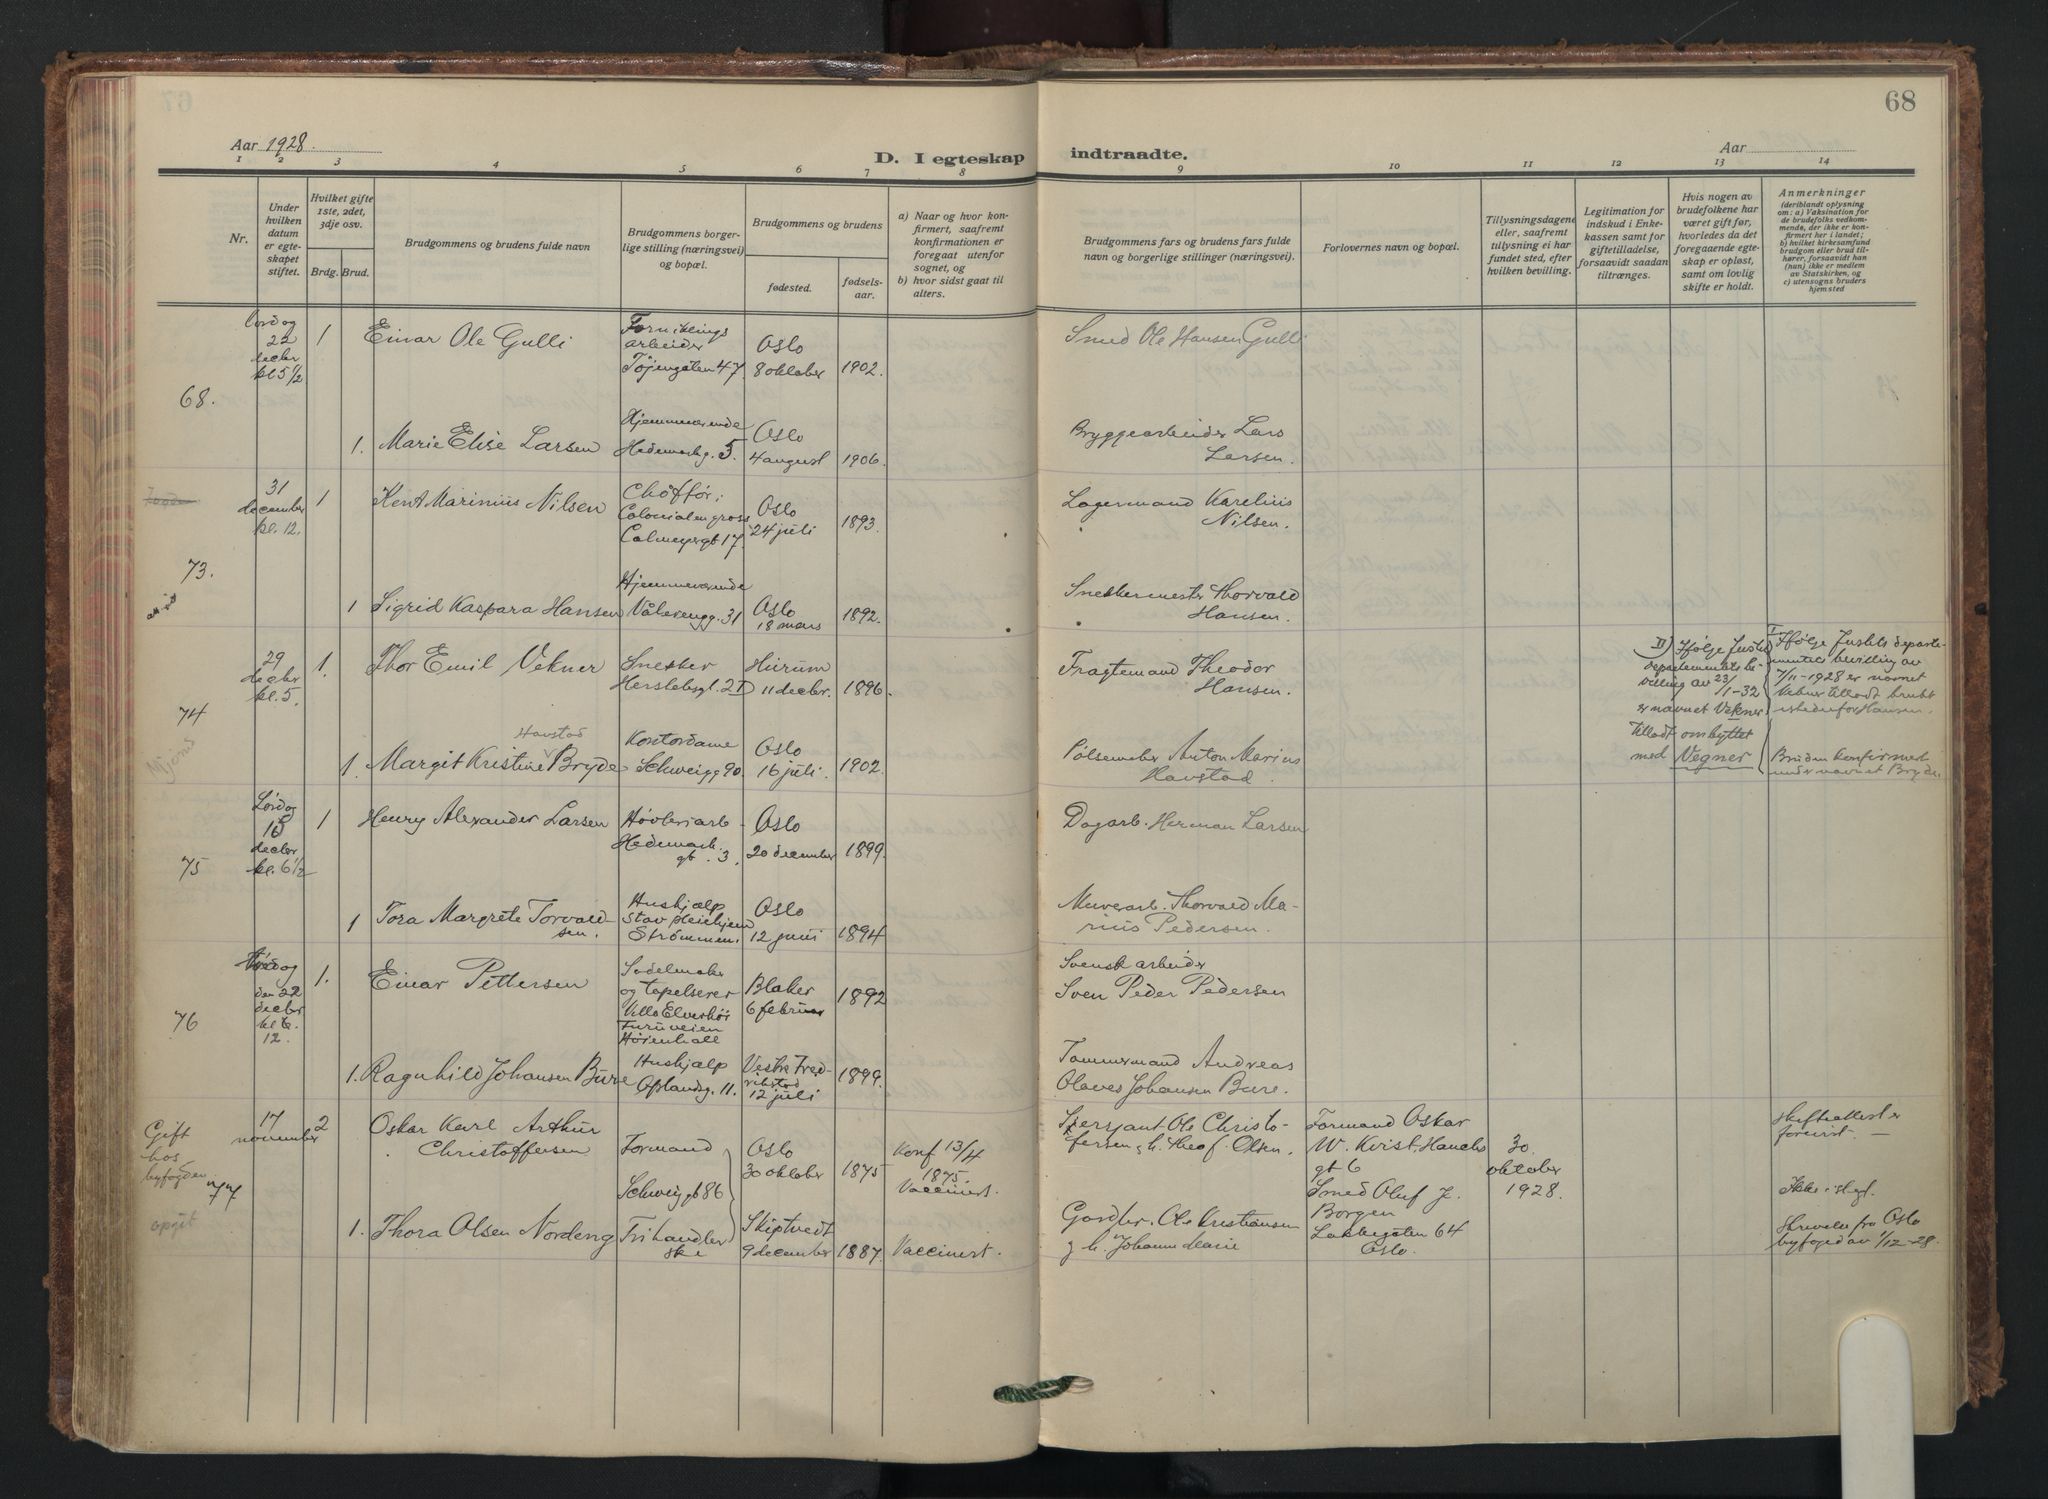 67
68
Aar 1928.
D. I egteskap
indtraadte.
Aar
1 2 3 4 5 6 7 8 9 10 11 12 13 14
Nr.
Under hvilken datum er egteskapet stiftet.
Hvilket gifte 1ste, 2det, 3dje osv.
Brdg. Brud.
Brudgommens og brudens fulde navn
Brudgommens borgerlige stilling (næringsvei) og bopæl.
Brudgommens og brudens
fødested.
fødselsaar.
a) Naar og hvor konfirmert, saafremt konfirmationen er foregaat utenfor sognet, og
b) hvor sidst gaat til alters.
Brudgommens fars og brudens fars fulde navn og borgerlige stillinger (næringsvei).
Forlovernes navn og bopæl.
Tillysningsdagene eller, saafremt tillysning ei har fundet sted, efter hvilken bevilling.
Legitimation for indskud i Enkekassen samt for giftetilladelse, forsaavidt saadan tiltrænges.
Hvis nogen av brudefolkene har været gift før, hvorledes da det foregaaende egteskap er opløst, samt om lovlig skifte er holdt.
Anmerkninger
(deriblandt oplysning om: a) Vaksination for de brudefolks vedkommende, der ikke er konfirmert her i landet;
b) hvilket kirkesamfund brudgom eller brud tilhører, forsaavidt han (hun) ikke er medlem av Statskirken, og
c) utensogns bruders hjemsted
68.
22 decbr kl 5 1/2
1
Einar Ole Gulli
Forniklings
arbeider
Tøjengaten 47
Oslo
8 oktober
1902.
Smed Ole Hansen Gulli
1.
Marie Elise Larsen
Hjemmeværende
Hedemarkg. 5.
Oslo
4 august
1906.
Bryggearbeider Lars
Larsen.
73.
31 december kl. 12.
1
Kent Marinius Nilsen
Chøffør i
Colonialengross
Calmeyergt 17.
Oslo
24 juli
1893.
Lagermand Karelius
Nilsen.
1
Sigrid Kaspara Hansen
Hjemmeværende
Vålerengg. 31
Oslo
18 mars
1892.
Snekkermester Thorvald
Hansen.
74
29 decbr kl. 5.
1.
Thor Emil Vekner
Snekker
Herslebsgt. 2 I
Hurum
11 decbr.
1896.
Fragtemand Theodor
Hansen.
II) Ifølge Justisdepartementets bevilling av 23/1-32
er navnet Vekner
tilladt ombyttet
med Vegner
I Ifølge Justits departementets bevilling av
7/11-1928 er navnet
Vekner tilladt brukt
istedenfor Hansen.
Mjønd
1.
Havstad
Margit Kristine Bryde
Kontordame
Schweigg 90.
Oslo
16 juli.
1902.
Pølsemaker Anton Marius
Havstad.
Bruden konfirmert
under navnet Bryde.
75
Lørdag
15 decbr kl. 6 1/2
1
Henry Alexander Larsen
Høvleriarb
Hedemark.
gt. 3.
Oslo
20 december
1899.
Dagarb. Herman Larsen
1
Tora Margrete Torvaldsen.
Hushjælp
Stav pleiehjem
Strømmen.
Oslo
12 juni
1894
Murerarb. Thorvald Marius Pedersen.
76
den 22 decbr kl 12.
1.
Einar Pettersen
Sadelmaker
og tapetserer
Villa Elverhøi
Furuveien
Høienhall
Blaker
6 februar
1892
Svensk arbeider
Sven Peder Pedersen
1.
Ragnhild Johansen Bure
Hushjælp
Oplandsg. 11.
Vestre Fredrikstad
12 juli
1899.
Tømmermand Andreas
Olaves Johansen Bure.
Gift
hos
byfogden
77
opgit
17 november
2
Oskar Karl Arthur
Christoffersen
Formand
Schweiggt 86
Oslo
30 oktober
1875
Konf 13/4
1875.
Vaccinert.
Sersjant Ole Christofersen g. h. Theof Olsen.
Formand Oskar
W. Krist. Hauchs
gt 6
Smed Oluf J.
Borgen
Lakkegaten 64
Oslo.
30
oktober
1928.
Skifteattest er
forevist. —
Ikke i slegt.
Skrivelse fra Oslo
byfoged av 1/12-28.
1.
Thora Olsen Nordeng
Frihandlerske
Skiptvedt
9 december
1887.
Vaccinert.
Gaardbr. Ole Kristiansen
g. h. Johanne Marie